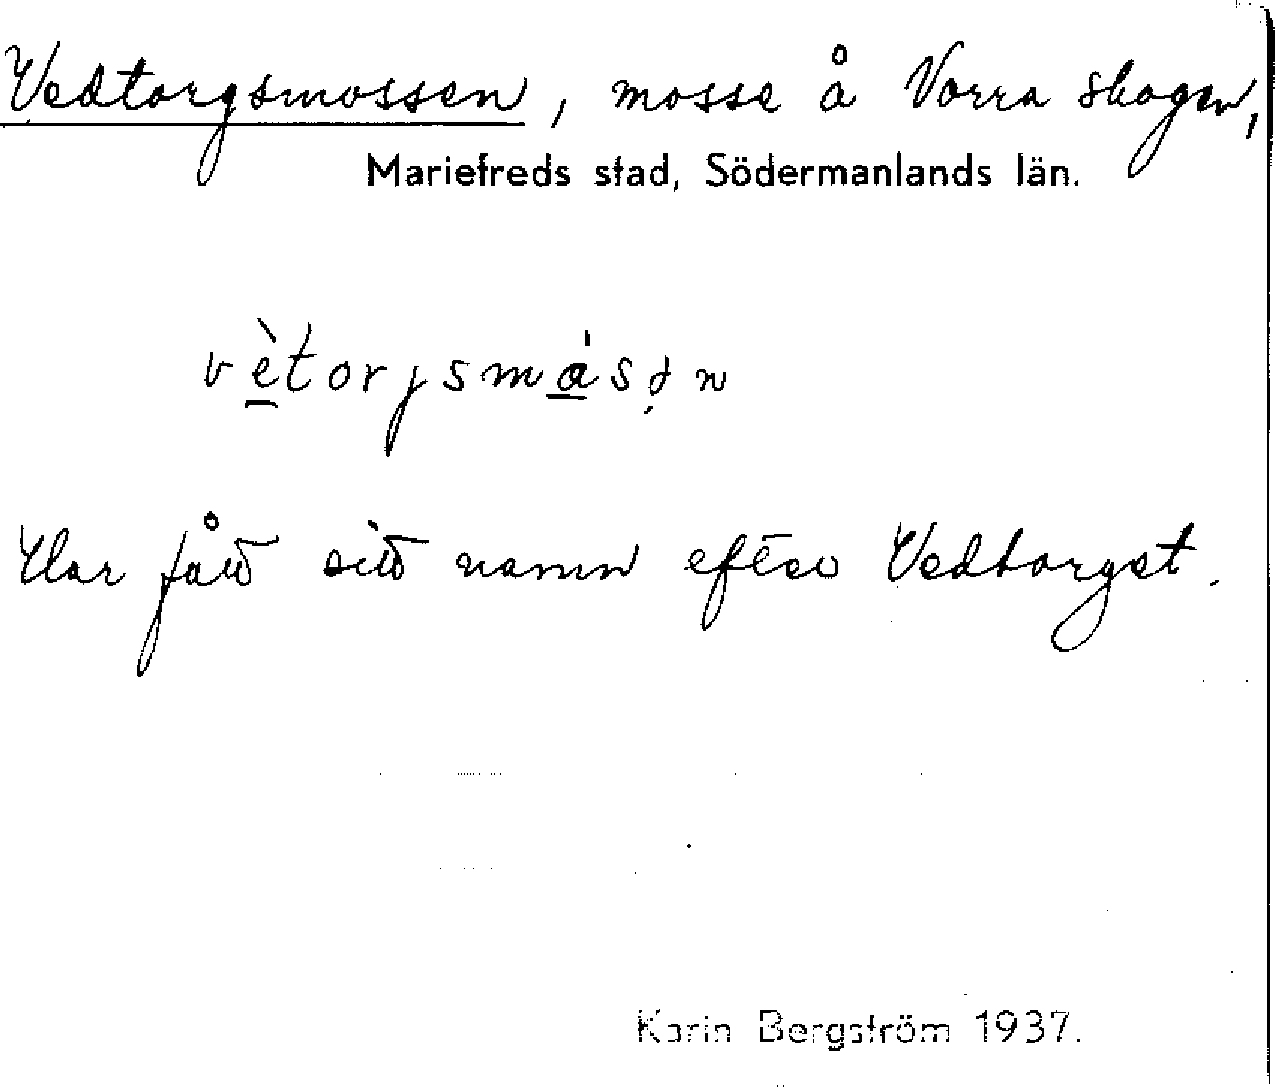 Vedtorgsmossen, mosse å Norra skogen,
Mariefreds stad, Södermanlands län.
vètorjsmåsən
Har fått sitt namn efter Vedtorget.
Karin Bergström 1937.